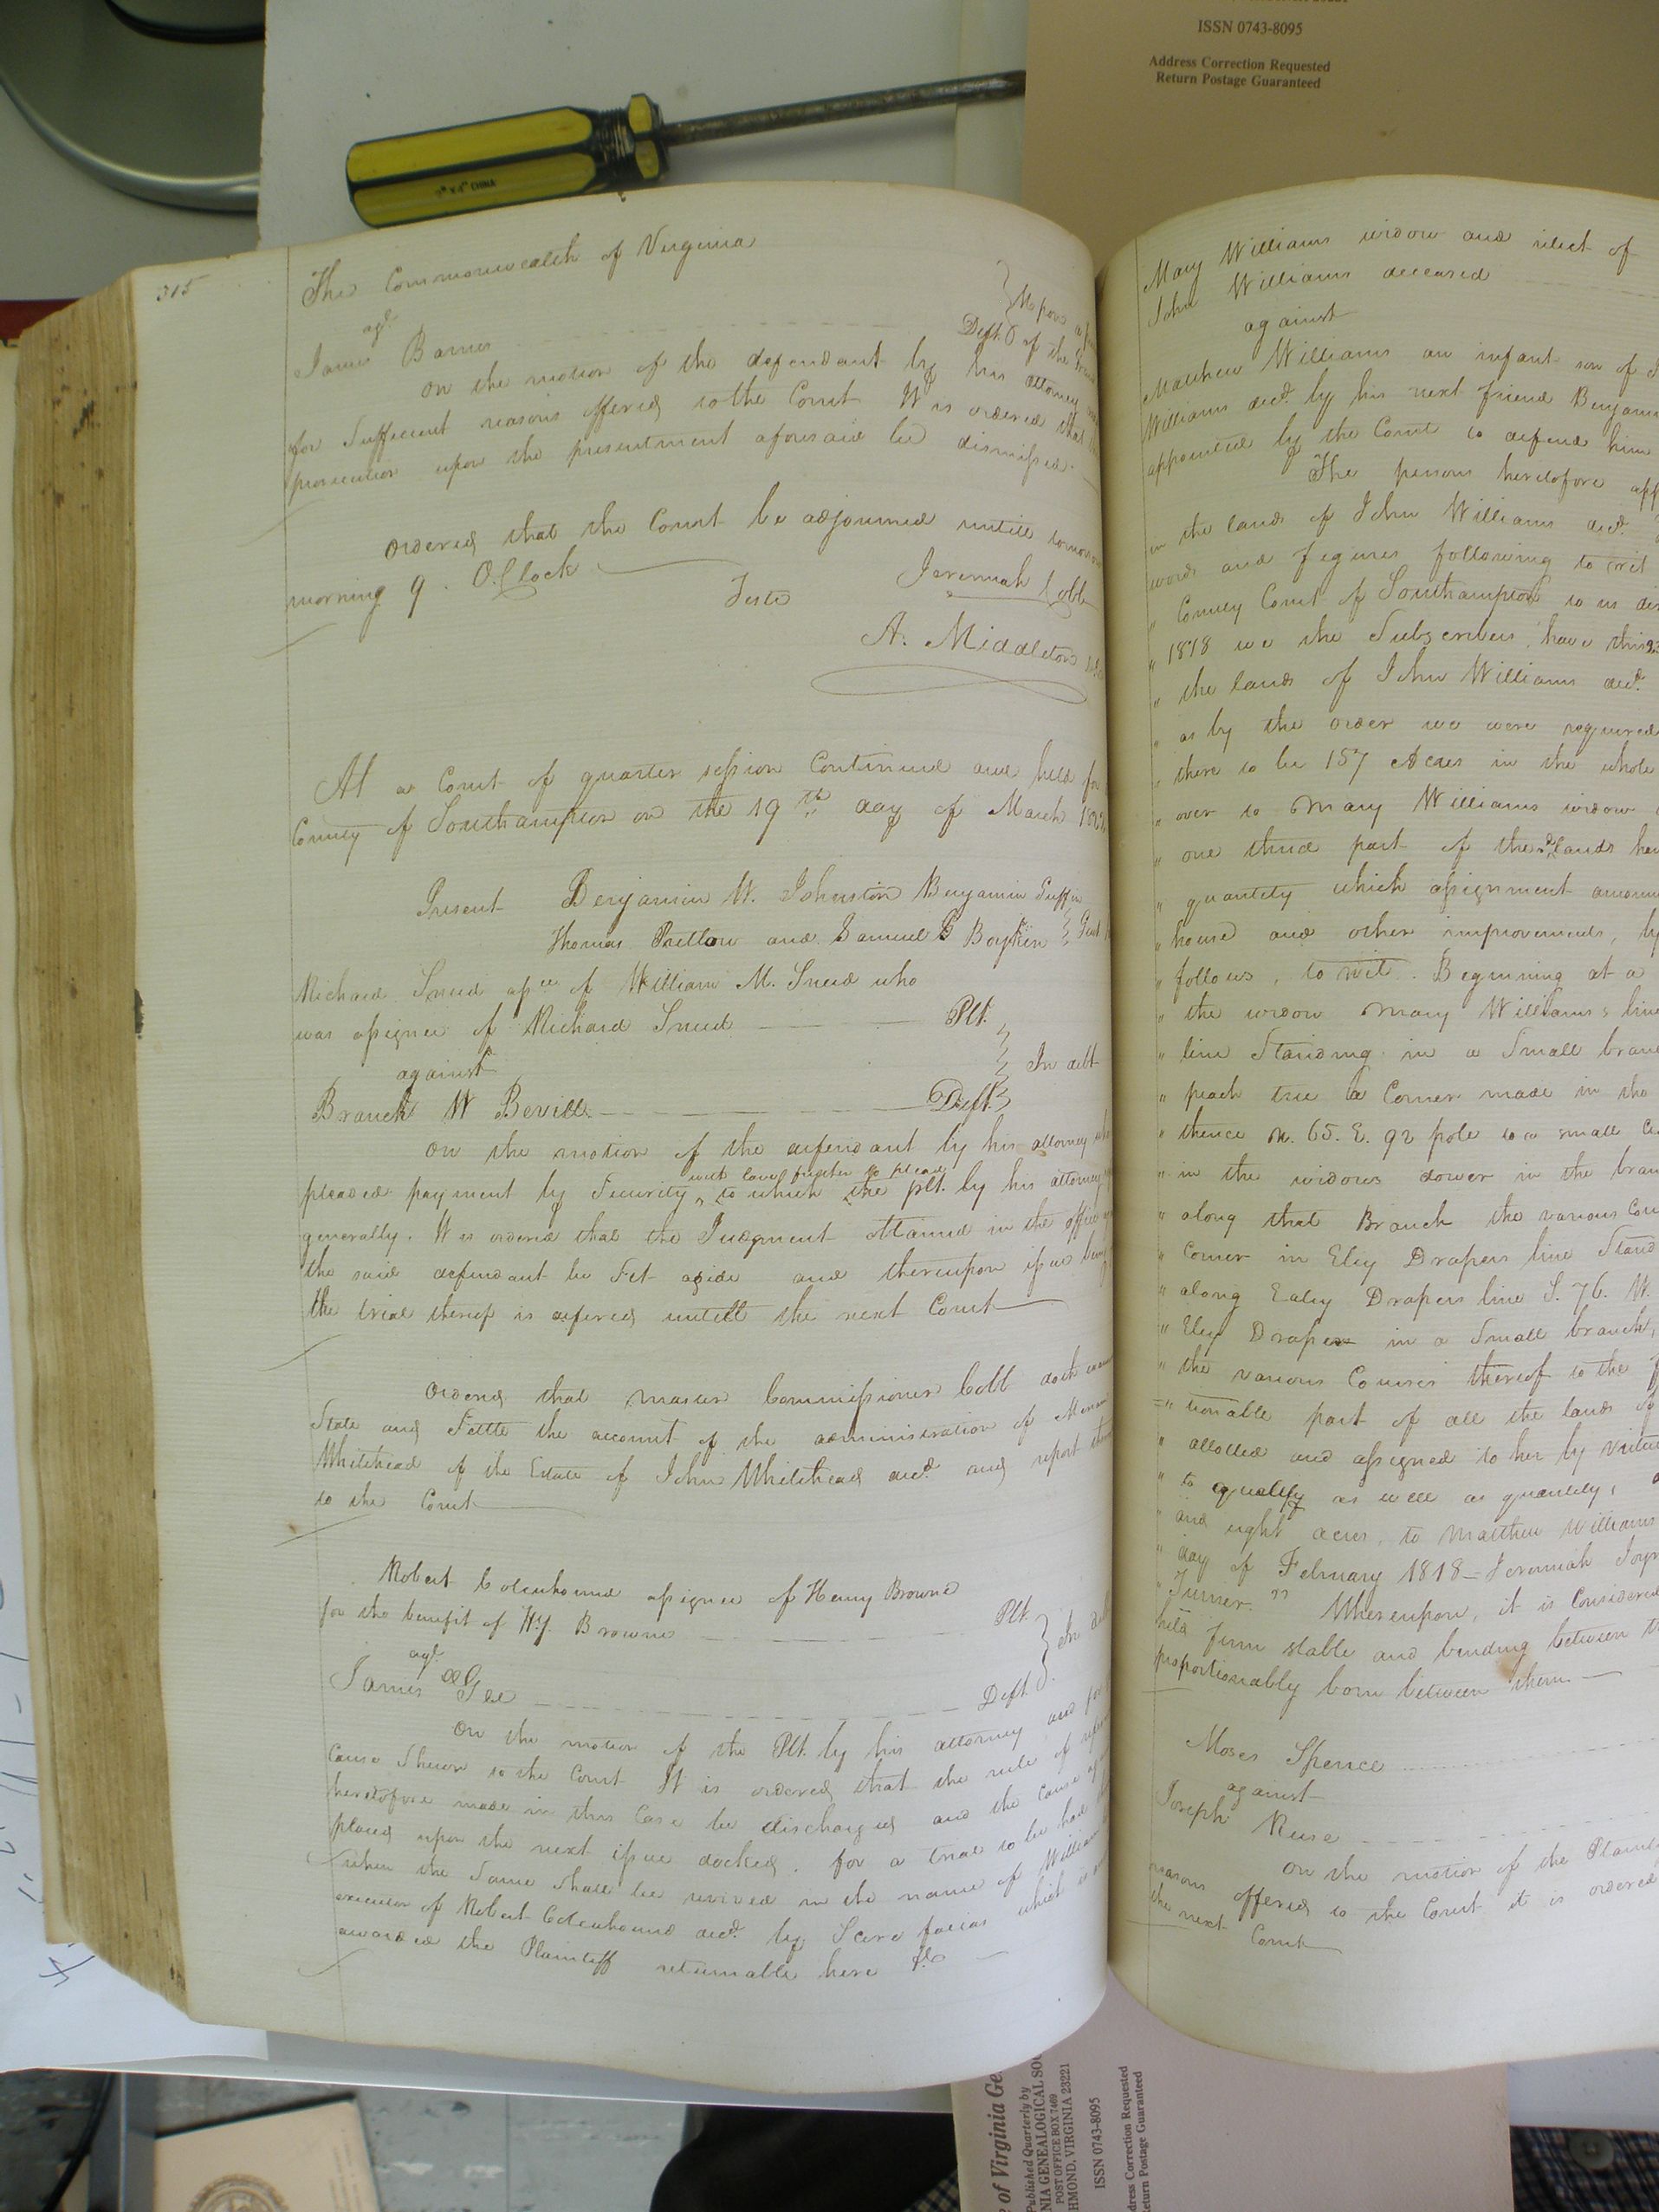 ISSN 0743-8095
Address Correction Requested
Return Postage Guaranteed
CHINA
315
The Commonwealth of Virginia
agt
James Barnes
Upon a
Deft. of the
On the motion of the defendant by his attorney and
for Sufficient reasons offered to the Court It is ordered that
prosecution upon the presentment aforesaid be dismissed.
Ordered that the Court be adjourned untill tomorrow
morning 9. O.Clock
Teste
Jeremiah Cobb
A. Middleton
At a Court of quarter session Continued and held for
County of Southampton on the 19th day of March
Present Benjamin W. Johnston Benjamin Griffin
Thomas Pretlow and Samuel B Boykin Gent
Richard Sneed assee of William M. Sneed who
was assignee of Richard Sneed Plt.
against
In debt
Branch W Beville Deft
On the motion of the defendant by his attorney who
with leave further to plead
pleaded payment by Security, to which the plt. by his attorney
generally. It is ordered that the Judgment attained in the office
the said defendant be Set aside and thereupon issue being
the trial thereof is defered untill the next Court
Ordered that master Commissioner Cobb doth
State and Settle the account of the administration of
Whitehead of the Estate of John Whitehead decd. and report
to the Court
Robert assignee of Henry Browne
for the benefit of Browne Plt.
In debt
agt.
James Gee Deft
On the motion of the Plt. by his attorney and for
Cause Shewn to the Court It is ordered that the rule of
heretofore made in this Case be discharged and the cause
placed upon the next issue docked. for a trial to be had
when the Same Shall be revived in the name of William
executor of Robert decd. by Scire facias which is
awarded the Plaintiff returnable here &c
Mary Williams widow and relict of
John Williams deceased
against
Matthew Williams an infant son of
Williams decd. by his next friend
appointed by the Court to defend him
The persons heretofore
in the lands of John Williams decd.
words and figures following to wit
" County Court of Southampton to us
" 1818 we the Subscribers have this
" the lands of John Williams decd.
" as by the order we were required
" there to be 157 Acres in the whole
" over to Mary Williams widow
" one third part of the sd lands
" quantity which assignment
" house and other improvements,
" follows, to wit. Beginning at a
" the widow Mary Williams's line
" line Standing in a Small
" peach tree a Corner made in the
" thence N. 65. E. 92 pole to a small
" in the widows dower in the
" along that Branch the various
" Corner in Eley Drapers line
" along Ealey Drapers line S. 76. W.
" Eley Draper in a Small branch,
" the various Courses thereof to the
" tionable part of all the lands
" allotted and assigned to her by virtue
" to quality as well as quantity,
" and eight acres, to Matthew Williams
" day of February 1818 = Jeremiah
" Turner. " Whereupon, it is Considered
held firm stable and binding between
proportionably born between them
Moses Spence
against
Joseph
On the motion of the
reasons offered to the Court it is ordered
the next Court
of Virginia
Published Quarterly by
GENEALOGICAL
POST OFFICE BOX 7469
VIRGINIA 23221
ISSN 0743-8095
Address Correction Requested
Return Postage Guaranteed